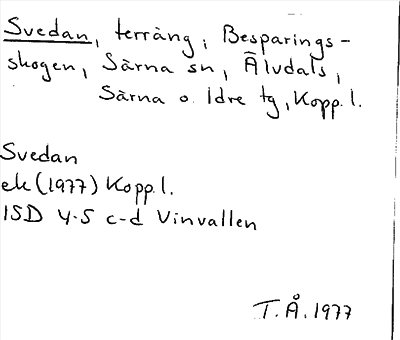 Svedan, terräng, Besparings-
skogen, Särna sn, Älvdals,
Särna o. Idre tg, Kopp. l.
Svedan
ek (1977) Kopp l.
ISD 4-5 c-d Vinvallen
T. Å. 1977